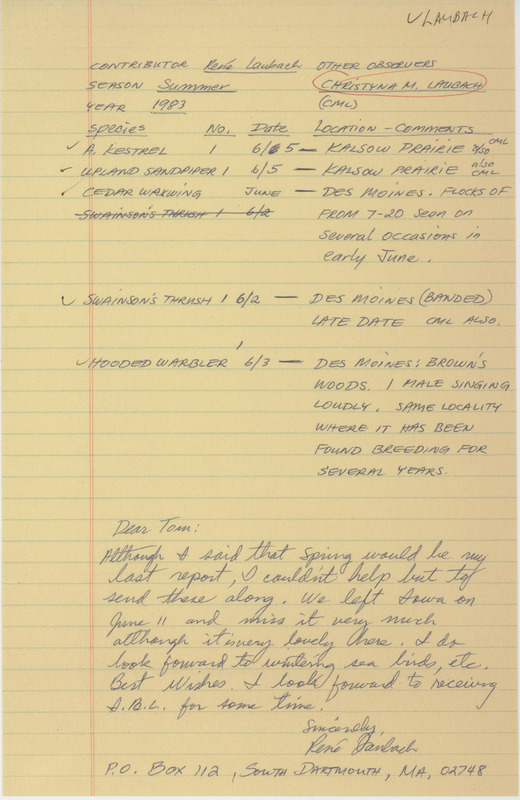 ✓ LAUBACH
CONTRIBUTOR René Laubach OTHER OBSERVERS
SEASON Summer CHRISTYNA M. LAUBACH
YEAR 1983 (CML)
Species No. Date LOCATION - COMMENTS
✓ A. KESTREL 1 6/5 — KALSOW PRAIRIE also CML
✓ UPLAND SANDPIPER 1 6/5 — KALSOW PRAIRIE also CML
✓ CEDAR WAXWING JUNE — DES MOINES. FLOCKS OF
SWAINSON'S THRUSH 1 6/2 FROM 7-20 seen on
several occasions in
early June.
✓ SWAINSON'S THRUSH 1 6/2 — DES MOINES (BANDED)
LATE DATE CML ALSO.
✓ HOODED WARBLER 1 6/3 — DES MOINES: BROWN'S
WOODS. 1 MALE SINGING
LOUDLY. SAME LOCALITY
WHERE IT HAS BEEN
FOUND BREEDING FOR
SEVERAL YEARS.
Dear Tom:
Although I said that Spring would be my
last report, I couldn't help but to
send these along. We left Iowa on
June 11 and miss it very much
although it's very lovely here. I do
look forward to wintering sea birds, etc.
Best Wishes. I look forward to receiving
I.B.L. for some time.
Sincerely,
René Laubach
P.O. BOX 112, SOUTH DARTMOUTH, MA, 02748